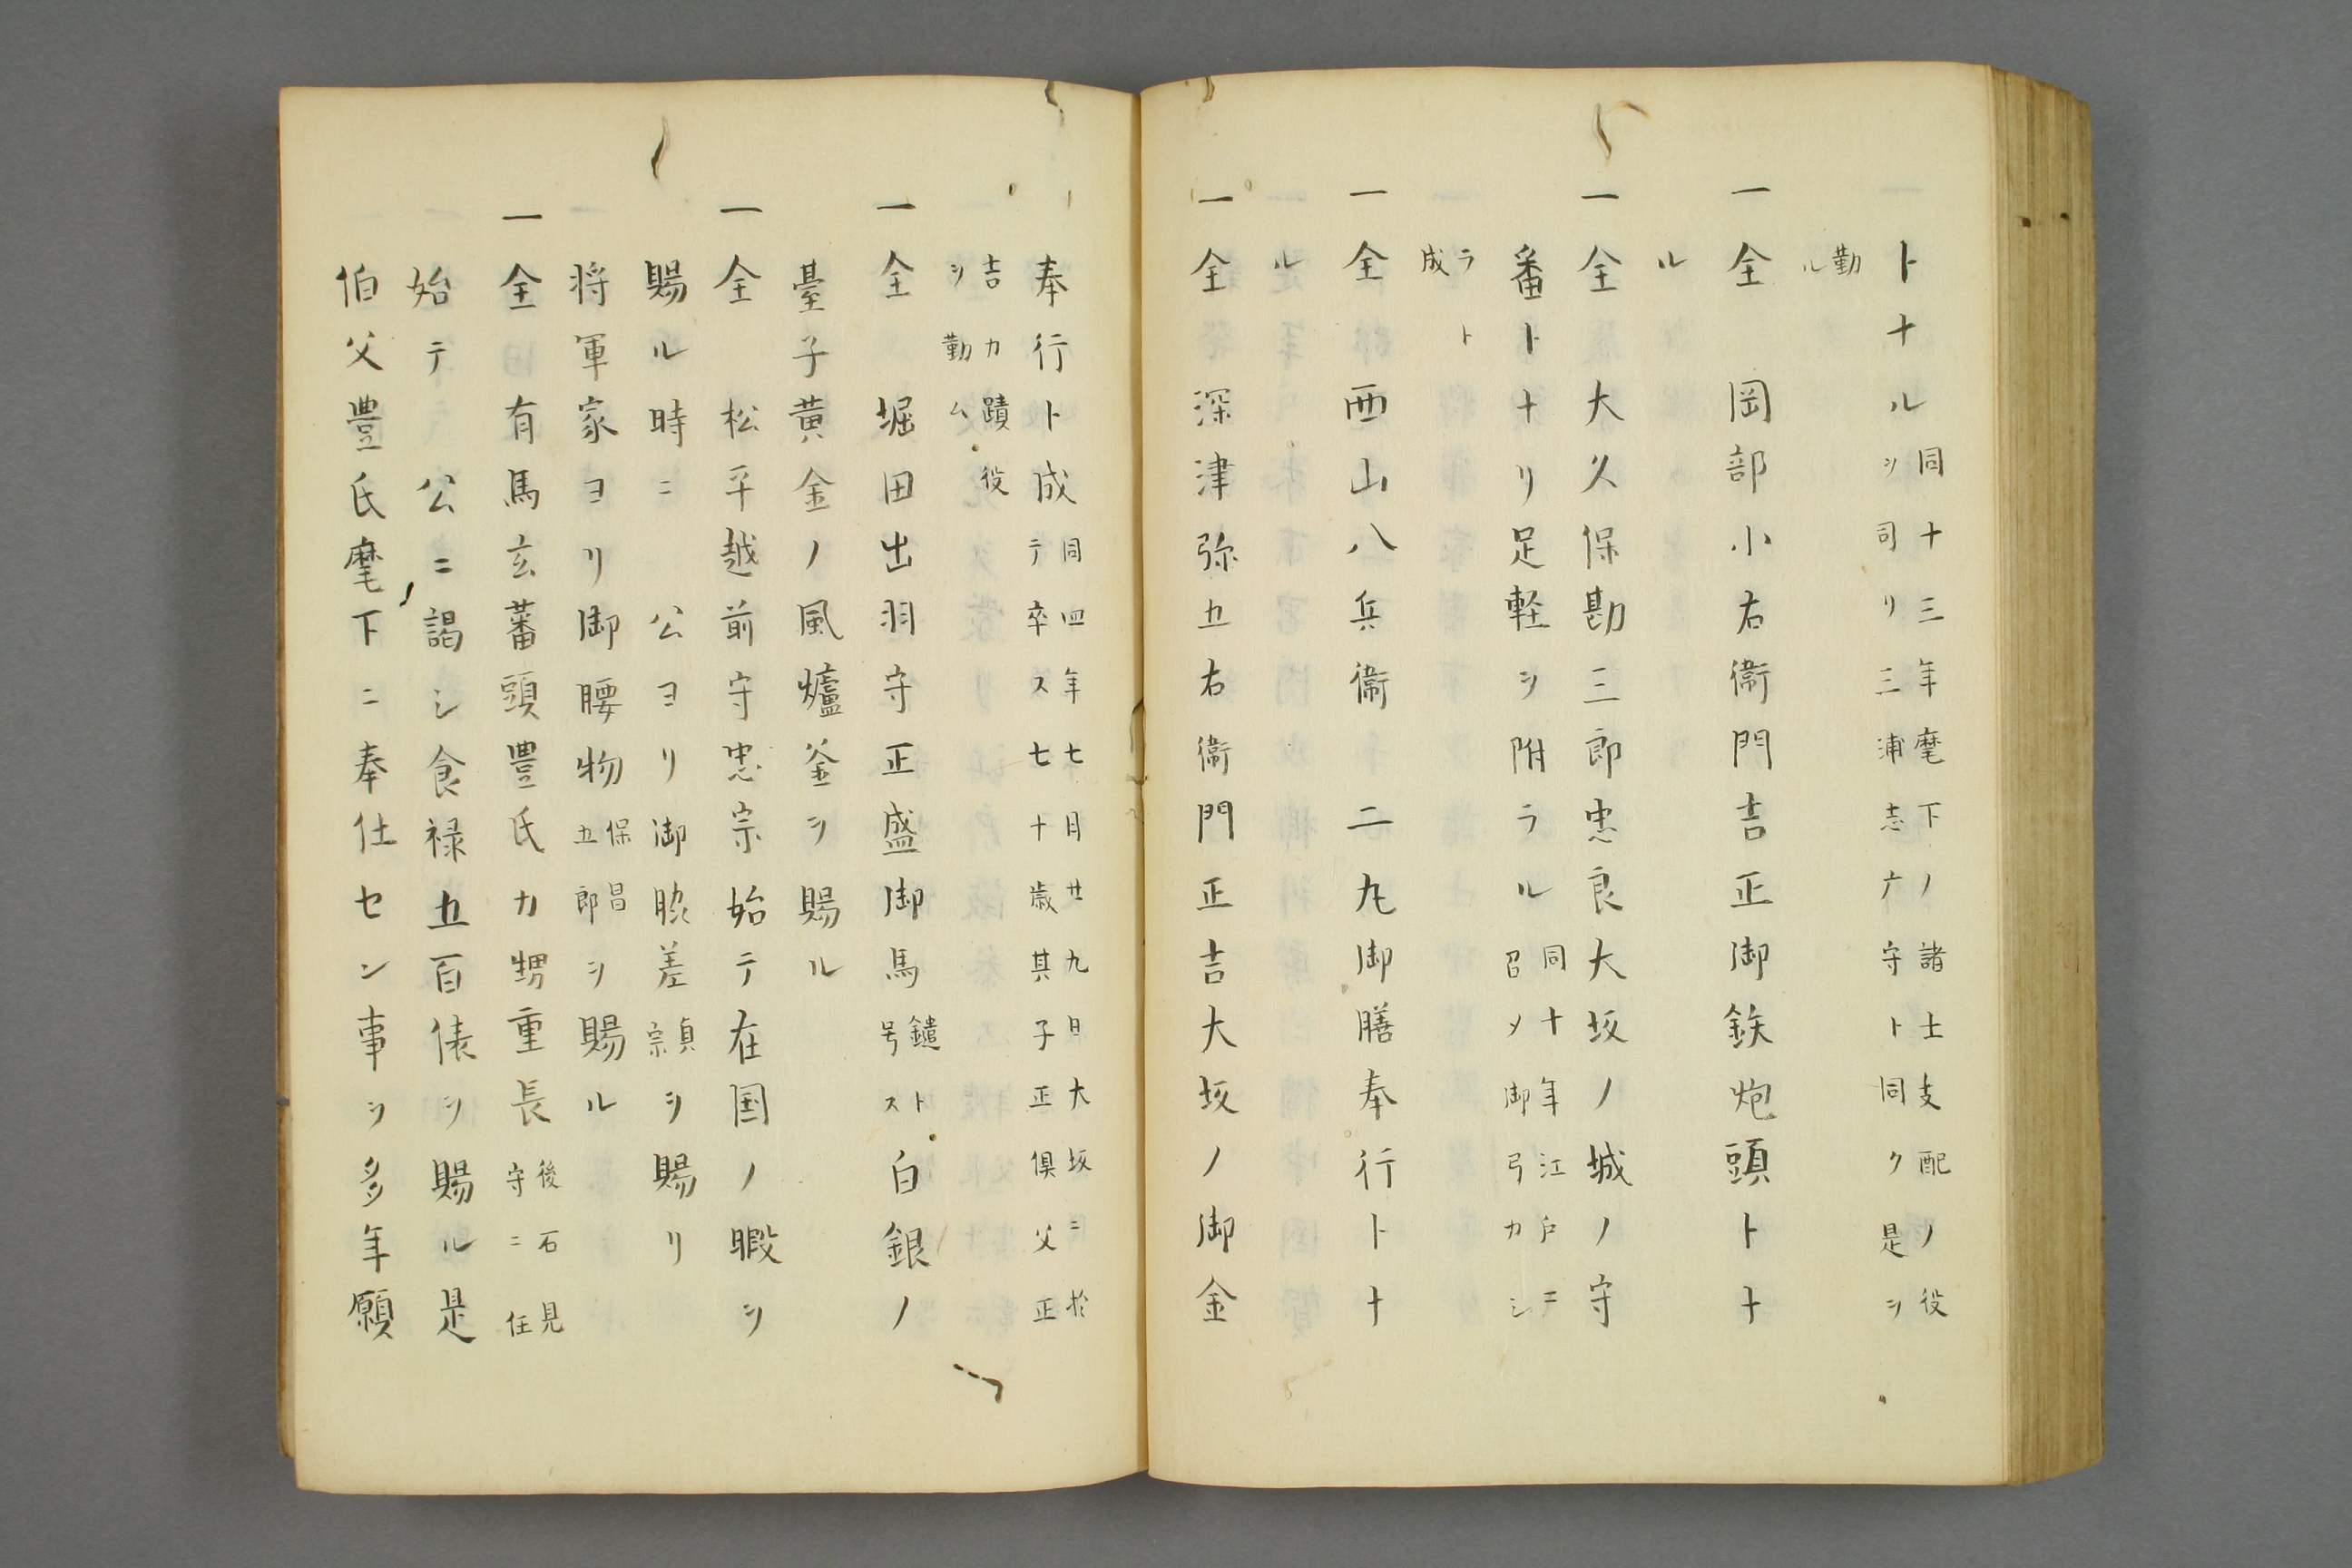 トナル同十三年麾下ノ諸士支配ノ役
ヲ司リ三浦志广守ト同ク是ヲ
勤
ル
一仝　岡部小右衛門吉正御鉄炮頭トナ
ル
一仝　大久保勘三郎忠良大坂ノ城ノ守
番トナリ足軽ヲ附ラル同十年江戸ニ
召メ御弓カシ
ラト
成
一仝　西山八兵衛　二丸御膳奉行トナ
ル
一仝　深津弥五右衛門正吉大坂ノ御金
奉行ト成同四年七月廿九日大坂ニ於
テ卒ス七十歳其子正倶父正
吉カ蹟役
ヲ勤ム
一仝　堀田出羽守正盛御馬鑓ト
号ス白銀ノ
臺子黄金ノ風爐釜ヲ賜ル
一仝　松平越前守忠宗始テ在国ノ暇ヲ
賜ル時ニ　公ヨリ御脇差貞
宗ヲ賜リ
将軍家ヨリ御腰物保昌
五郎ヲ賜ル
一仝　有馬玄蕃頭豊氏カ甥重長後石見
守ニ任
始テ　公ニ謁シ食禄五百俵ヲ賜ル是
伯父豊氏麾下ニ奉仕セン事ヲ多年願